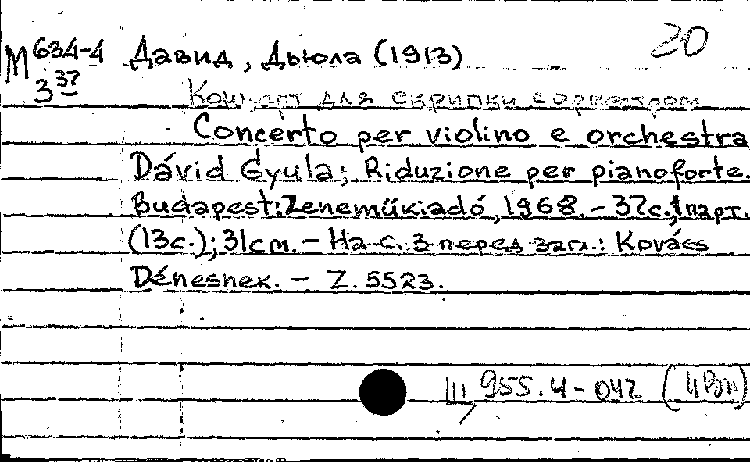 М 634-4 Давид, Дьюла (1913) 20
3 37
Концерт для скрипки с оркестром
Concerto per violino e orchestra
Dávid Gyula; Riduzione per pianoforte.
Budapest: Zeneműkiadó, 1968. - 37с., 1 парт.
(13с.); 31см. - На с. 3 перед загл.: Kovács
Dénesnek. - Z. 5523.
Ш 955.4-042 (4Вн)